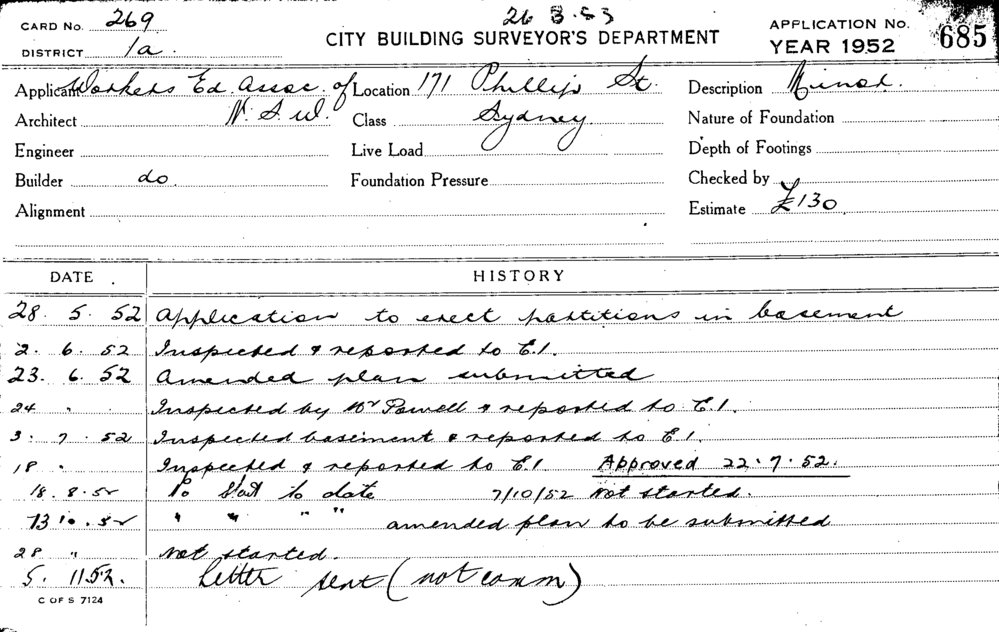 CARD No. 269
26 3.53
CITY BUILDING SURVEYOR'S DEPARTMENT
APPLICATION No.
YEAR 1952
685
DISTRICT 1a.
Applicant Workers Ed. Assoc. of Location 171 Phillip St. Description Minor.
Architect N. S. W. Class Sydney. Nature of Foundation
Engineer Live Load Depth of Footings
Builder do Foundation Pressure Checked by
Alignment Estimate £130
DATE HISTORY
28. 5. 52 Application to erect partitions in basement
2. 6. 52 Inspected & reported to E.I.
23. 6. 52 Amended plan submitted
24 " Inspected by Mr Powell & reported to E.I.
3. 7. 52 Inspected basement & reported to E.I.
18 " Inspected & reported to E.I Approved 22.7.52.
18. 8. 52 No Start to date 7/10/52 Not started.
13 10. 52 " " " " amended plan to be submitted
28 " Not started.
5. 11 52. Letter sent (not comm)
C OF S 7124